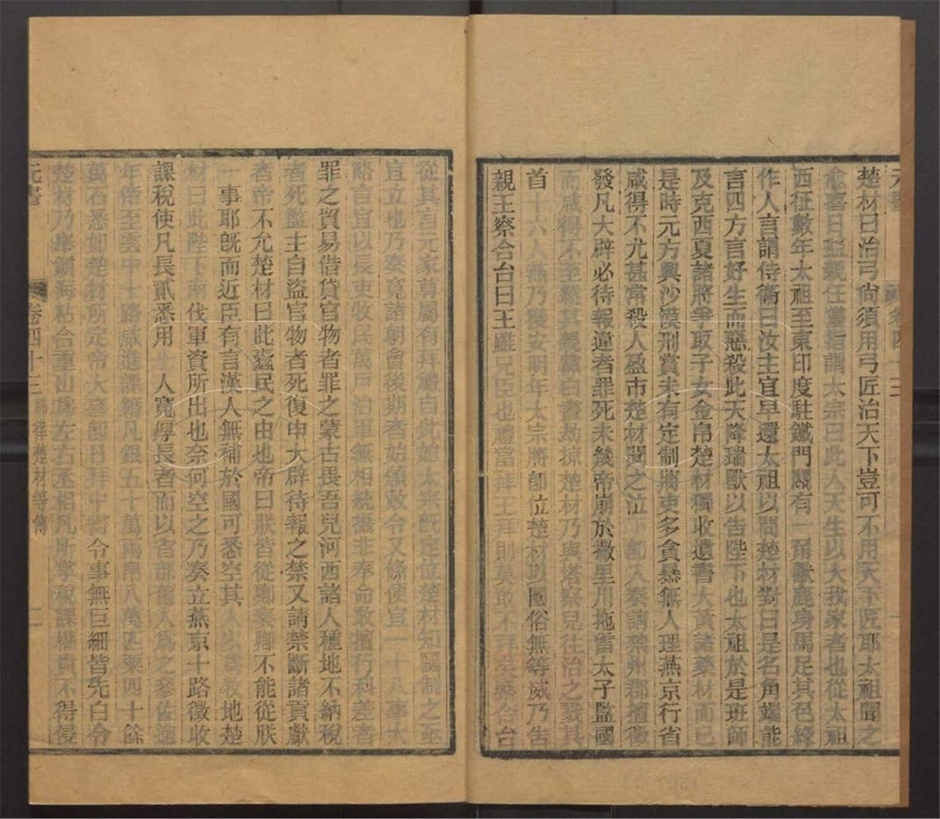 楚材曰治弓尚須用弓匠治天下豈可不用天下匠耶太祖聞之
愈喜日益親任嘗指謂太宗曰此人天生以大我家者也從太祖
西征數年太祖至東印度駐鐵門關有一角獸鹿身馬尾其色綠
作人言謂侍衞曰汝主宜早還太祖以問楚材對曰是名角端能
言四方言好生而惡殺此天降瑞獸以告陛下也太祖於是班師
及克西夏諸將爭取子女金帛楚材獨收遺書大黃諸藥材而已
是時元方興沙漠刑賞未有定制將吏多貪暴無人理燕京行省
咸得不尤甚常殺人盈市楚材聞之泣 卽入奏請禁州郡擅徵
發凡大辟必待報違者罪死未幾帝崩於撒里川拖雷太子監國
而咸得不至縱其親黨白晝劫掠楚材乃與塔察兒往治之戮其
首 十六人燕乃獲安明年太宗將卽位楚材以國俗無等威乃告
親王察合台曰王雖兄臣也禮當拜王拜則莫敢不拜矣察合台
從其言元家尊屬有拜禮自此始太宗旣定位楚材知國制之
宜立也乃奏寬諸朝會後期者始頒赦令又條便宜一十八事大
略言宜以長吏牧民萬戶治軍無相統攝非奉命敢擅行科差者
罪之貿易借貸官物者罪之蒙古畏吾兒河西諸人種地不納稅
者死監主自盜官物者死復申大辟待報之禁又請禁斷諸貢獻
者帝不允楚材曰此蠧民之由也帝曰朕皆從卿奏卿不能從朕
一事耶旣而近臣有言漢人無補於國可悉空其人以爲牧地楚
材曰此陛下南 伐軍資所出也奈何空之乃奏立燕京十路徵收
課稅使凡長貳悉用 人寬厚長者而以省部舊人爲之參佐逾
年帝至雲中十路咸進課籍凡銀五十萬兩帛八萬匹粟四十餘
萬石悉如楚材所定帝大喜卽日拜中書 令事無巨細皆先白令
楚材乃舉鎭海粘合重山爲左右丞相凡所掌稅課權貴不得侵
元書 卷四十三 耶律楚材等傳